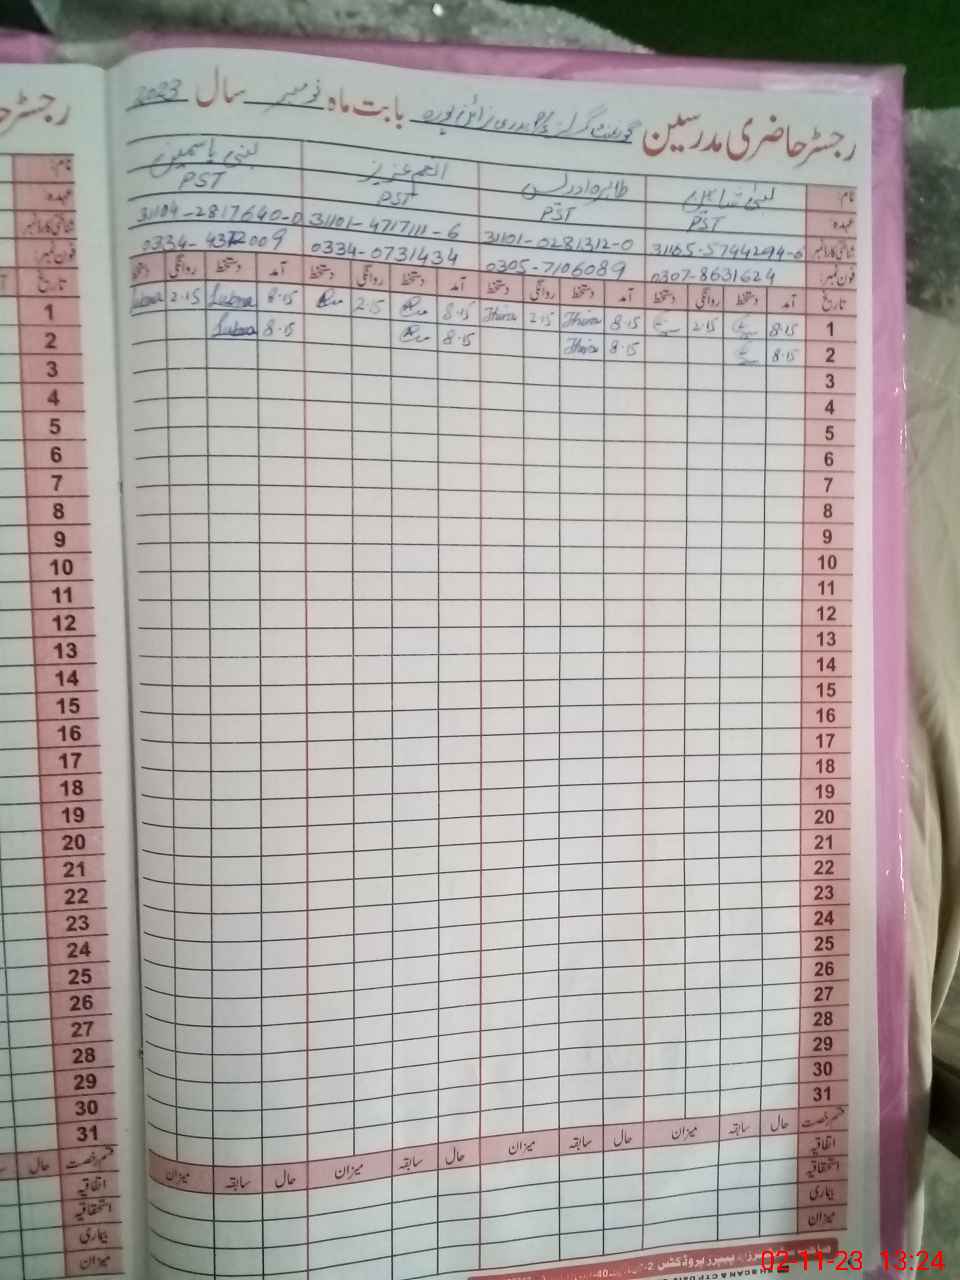 رجسٹر حاضری مدرسین گورنمنٹ گرلز بابت ماہ نومبر سال 2023
نام: طاہرہ ادریس انعم عزیز لبنیٰ یاسمین
عہدہ: PST PST PST PST
شناختی کارڈ نمبر 31105-5794294-6 31101-0281312-0 31101-4717111-6 31104-2817640-0
فون نمبر: 0307-8631624 0305-7106089 0334-0731434 0334-4372009
تاریخ آمد دستخط روانگی دستخط آمد دستخط روانگی دستخط آمد دستخط روانگی دستخط آمد دستخط روانگی دستخط
1 8-15 2-15 8-15 Thira 2-15 Thira 8-15 2-15 8-15 Lubna 2-15 Lubna 1
2 8-15 8-15 Thira 8-15 8-15 Lubna 2
3 3
4 4
5 5
6 6
7 7
8 8
9 9
10 10
11 11
12 12
13 13
14 14
15 15
16 16
17 17
18 18
19 19
20 20
21 21
22 22
23 23
24 24
25 25
26 26
27 27
28 28
29 29
30 30
31 31
قسم رخصت حال سابقہ میزان حال سابقہ میزان حال سابقہ میزان حال سابقہ میزان قسم رخصت حال
اتفاقیہ اتفاقیہ
استحقاقیہ استحقاقیہ
بیماری بیماری
میزان میزان
02-11-23 13:24